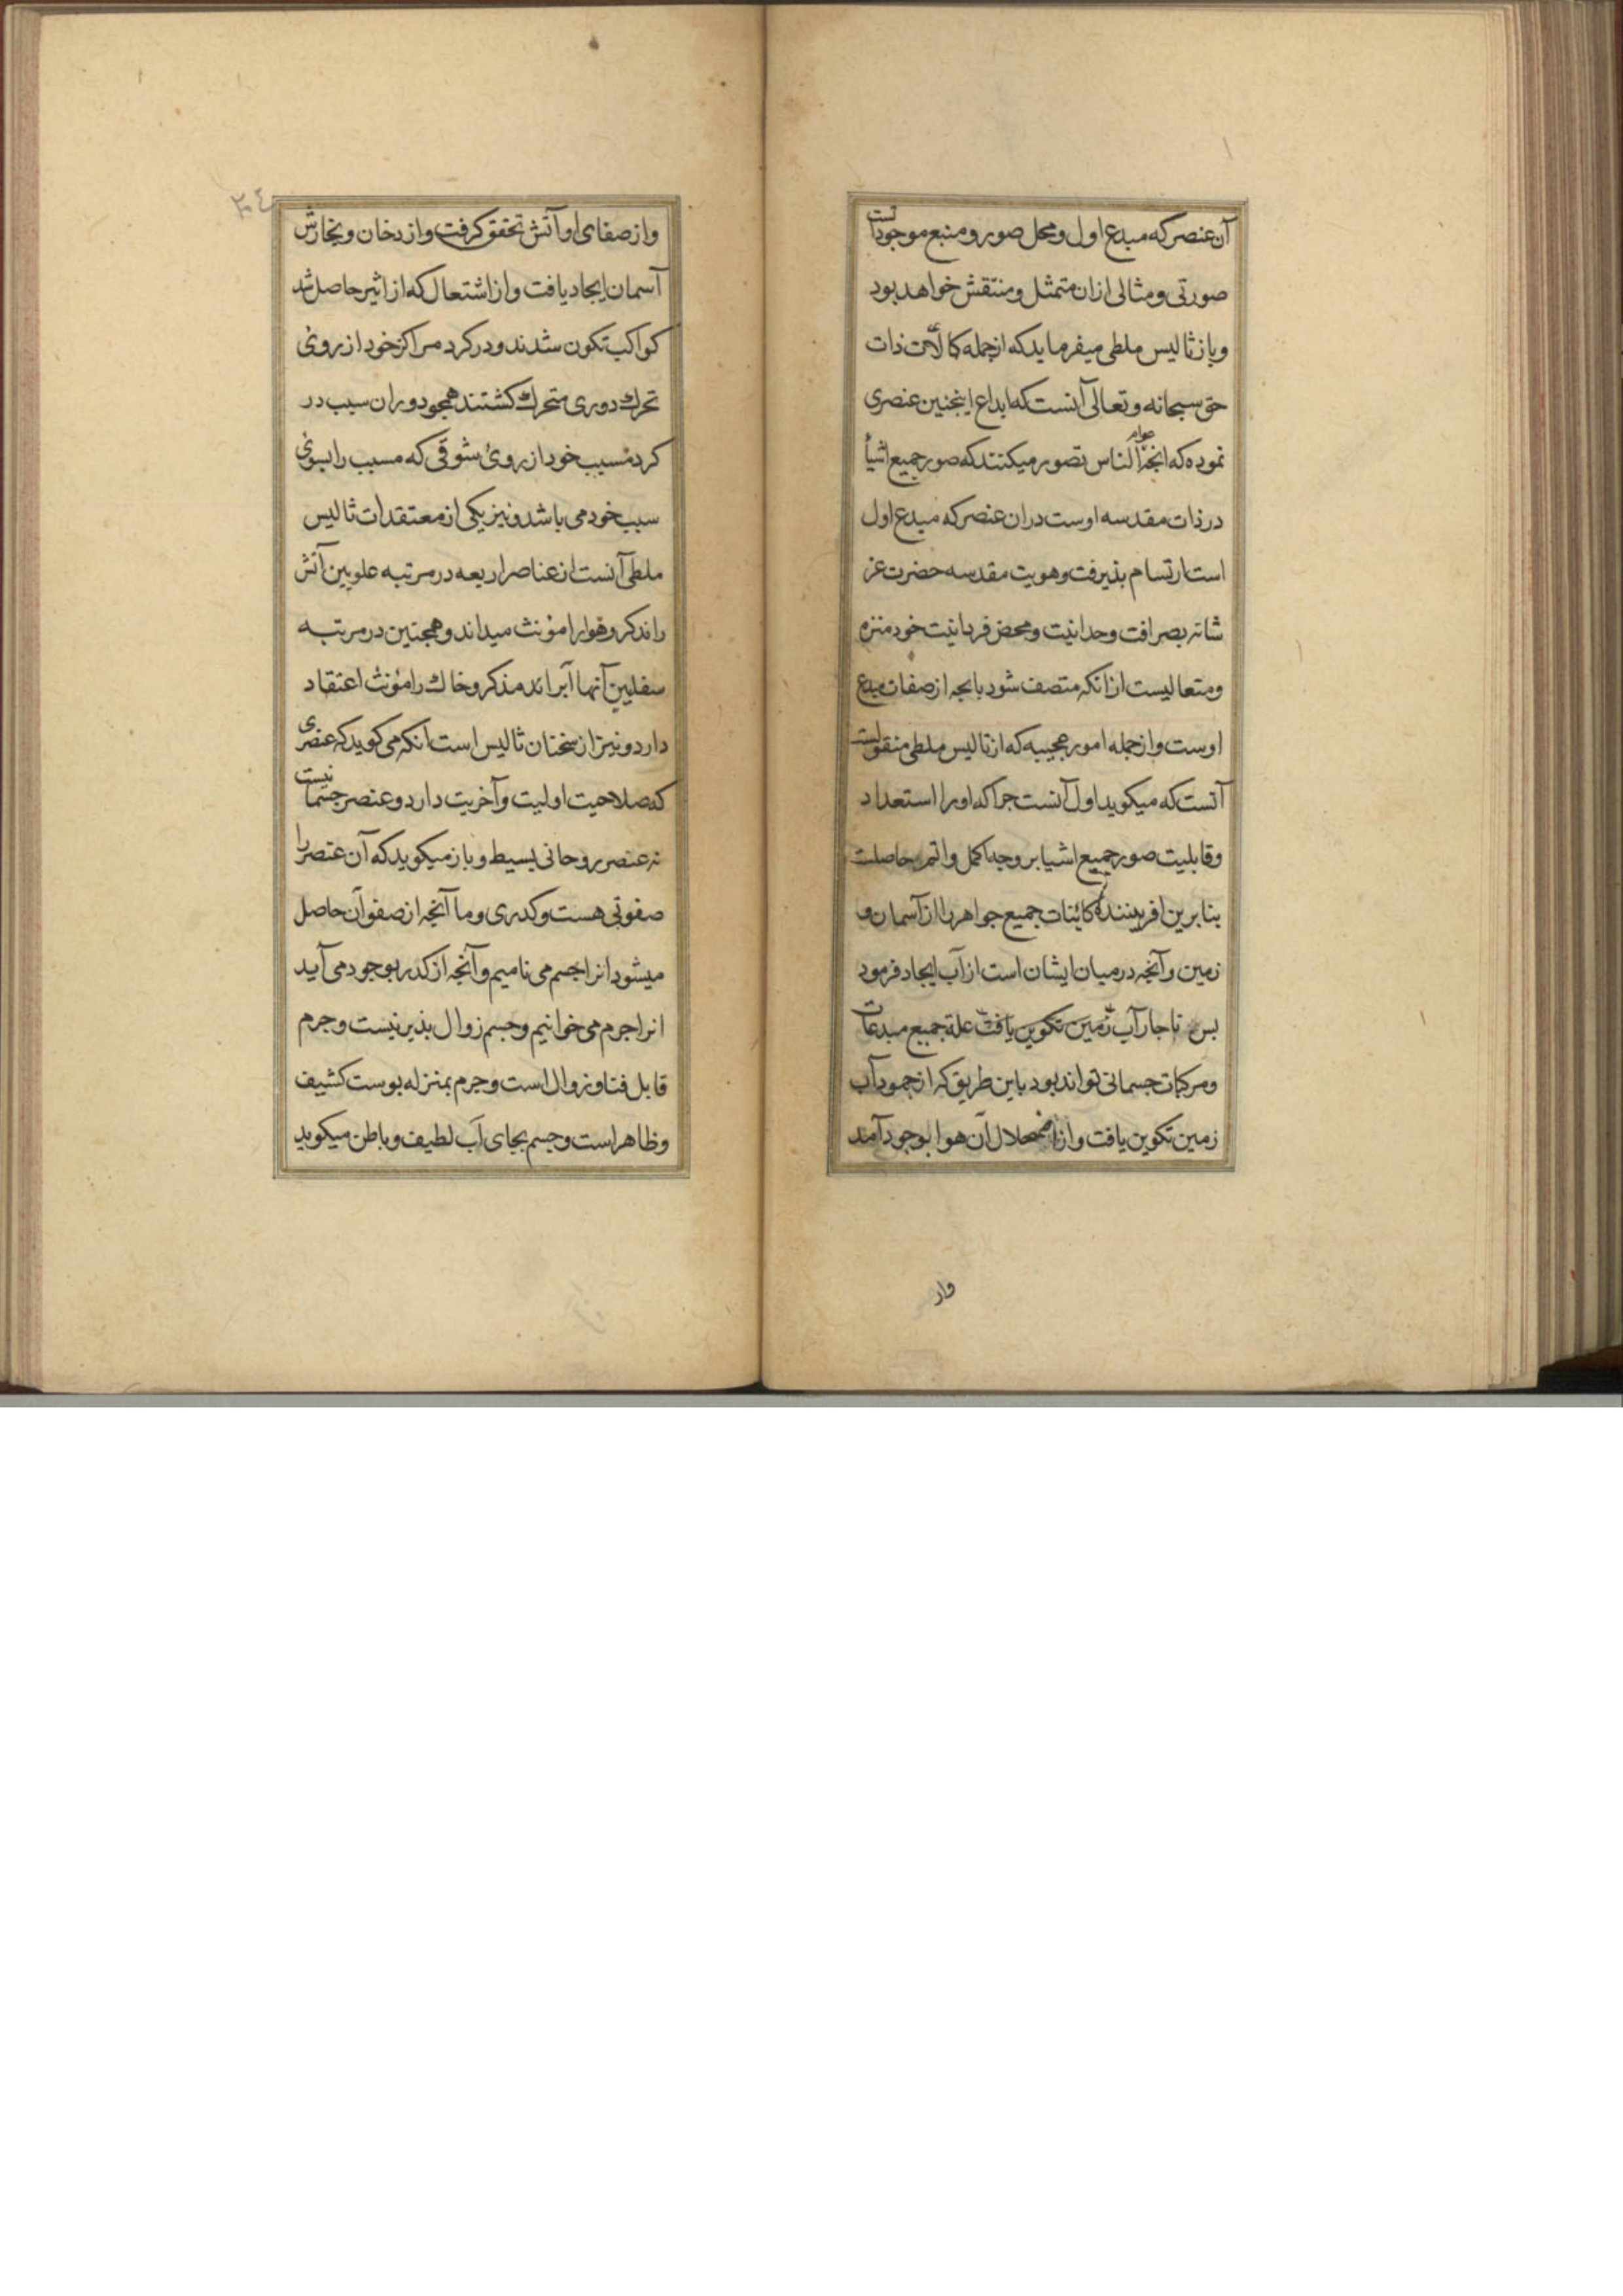 آن عنصر که مبدع اول و محل صور و منبع موجوداتست
صورتی و مثالی ازان متمثل و منتقش خواهد بود
و باز ثالیس ملطی میفرماید که از جمله کمالات ذات
حق سبحانه و تعالی آنست که ابداع اینجنین عنصری
نموده که انجه عوام الناس تصور میکنند که صور جمیع اشیأ
در ذات مقدسه اوست دران عنصر که مبدع اول
است ارتسام بذیرفت و هویت مقدسه حضرت عز
شانه بصرافت وحدانیت و محض فردانیت خود منزه
و متعالیست ازانکه متصف شود بانجه از صفات مبدع
اوست و از جمله امور عجیبه که از ثالیس ملطی منقولست
آنست که میکوید اول آبست جراکه او را استعداد
و قابلیت صور جمیع اشیا بر وجه اکمل و اتم حاصلست
بنابرین افریننده کائینات جمیع جواهر را از آسمان و
زمین و آنجه در میان ایشان است از آب ایجاد فرمود
بس ناجار آب زمین تکوین یافت علة جمیع مبدعات
و مرکبات جسمانی تواند بود باین طریق که از جمود آب
زمین تکوین یافت و از اضمحلال آن هوا بوجود آمد
واز
٣٠٤
و از صفای او آتش تحقق کرفت و از دخان و بخارش
آسمان ایجاد یافت و از اشتعال که از اثیر حاصل شد
کواکب تکون شدند و در کرد مراکز خود از روئ
تحرك دوری متحرك کشتند همجو دوران سبب در
کرد مسبب خود از روئ شوقی که مسبب را بسوئ
سبب خود می باشد و نیز یکی از معتقدات ثالیس
ملطی آنست از عناصر اربعه در مرتبه علویین آتش
را ندکر و هوا را مؤنث میداند و همجنین در مرتبه
سفلیین آنها آبرا ند مذکر و خاك را مؤنث اعتقاد
دارد و نیز از سخنان ثالیس است انکه می کوید که عنصری
که صلاحیت اولیت و آخریت دارد و عنصر جسمانیست
نه عنصر روحانی بسیط و باز میکوید که آن عنصر را
صفوتی هست و کدری و ما آنجه از صفو آن حاصل
میشود انرا جسم می نامیم و آنجه از کدر بوجود می آید
انرا جرم می خوانیم و جسم زوال بذیر نیست و جرم
قابل فنا و زوال است و جرم بمنزله بوست کشیف
و ظاهر است و جسم بجای آب لطیف و باطن میکوید